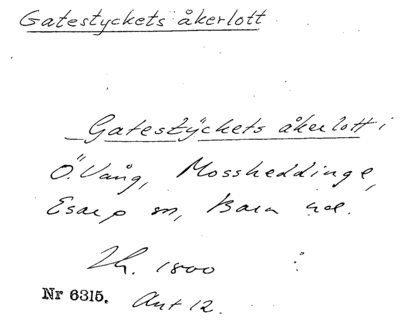 Gatestyckets åkerlott
Gatestÿckets åkerlott i
Ö Vång, Mossheddinge,
Esarp sn, Bara hd.
1800
Nr 6315. Akt 12.